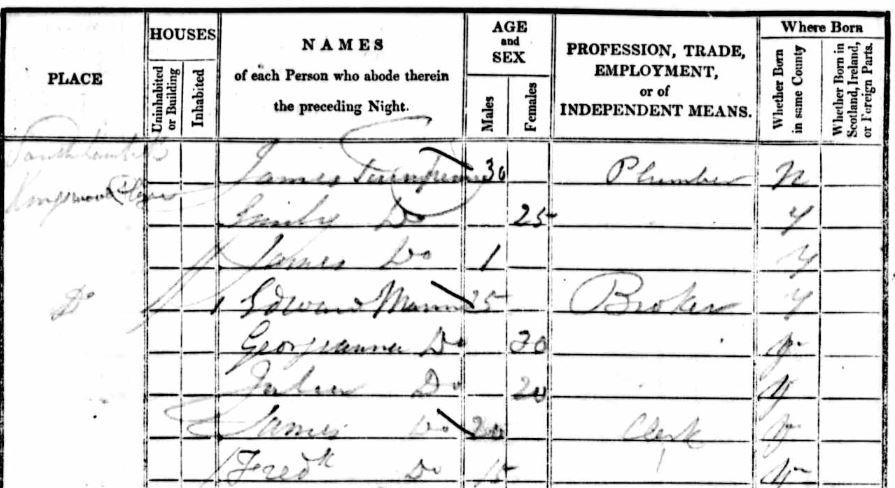 PLACE
HOUSES
Uninhabited or Building
Inhabited
NAMES
of each Person who abode therein
the preceding Night.
AGE
and
SEX
Males
Females
PROFESSION, TRADE,
EMPLOYMENT,
or of
INDEPENDENT MEANS.
Where Born
Whether Born in same County
Whether Born in Scotland, Ireland, or Foreign Parts.
James 30 Plumber N
Emily Do 25 Y
James Do 1 Y
Do 1 Edward Mann 25 Broker Y
Georgeanna Do 30 Y
Julia Do 20 Y
James Do 20 Clerk Y
Fredk Do 15 Y